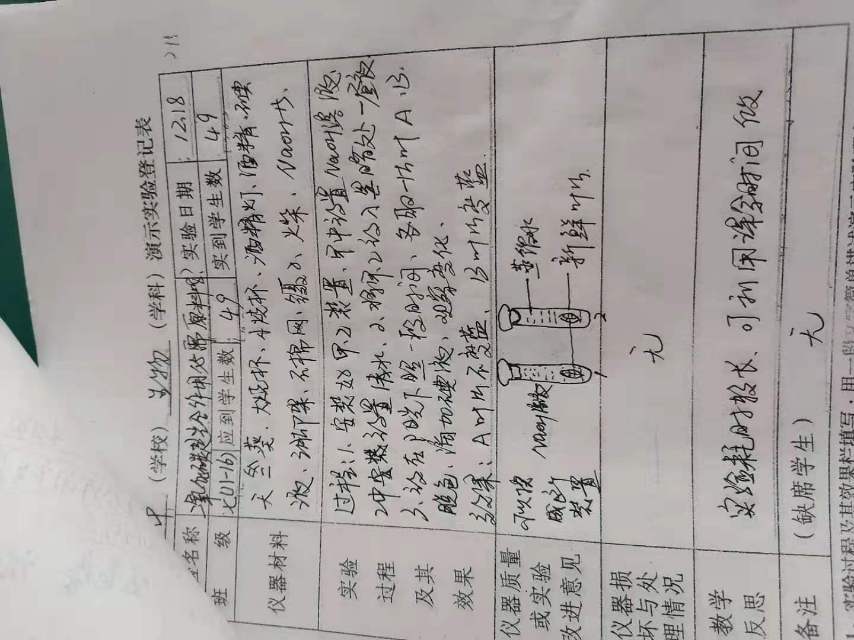 (学校) 生物 (学科) 演示实验登记表
名称 二氧化碳是光合作用必需原料吗 实验日期 : 12.18
班级 七(11-16) 应到学生数 : 49 实到学生数 49
仪器材料 天竺葵、大烧杯、小烧杯、酒精灯、酒精、碘
液、滴管、石棉网、镊子、火柴、NaOH等、
实验过程及其效果 过程:1、安装好甲乙装置、甲中设置NaOH溶液
乙中安装设置清水、2、将甲乙设入黑暗处一昼夜
3、放在阳光下照一段时间、各取一片叶A、B、
脱色、滴加碘液、观察变化、
效果:A叶片不变蓝、B叶片变蓝
仪器质量或实验改进意见 可以换
成这个
装置
NaOH溶液
蒸馏水
新鲜叶片
仪器损坏与处理情况 无
教学反思 实验耗时较长、可利用课余时间做
备注 (缺席学生) 无
实验过程及其效果栏填写,用一